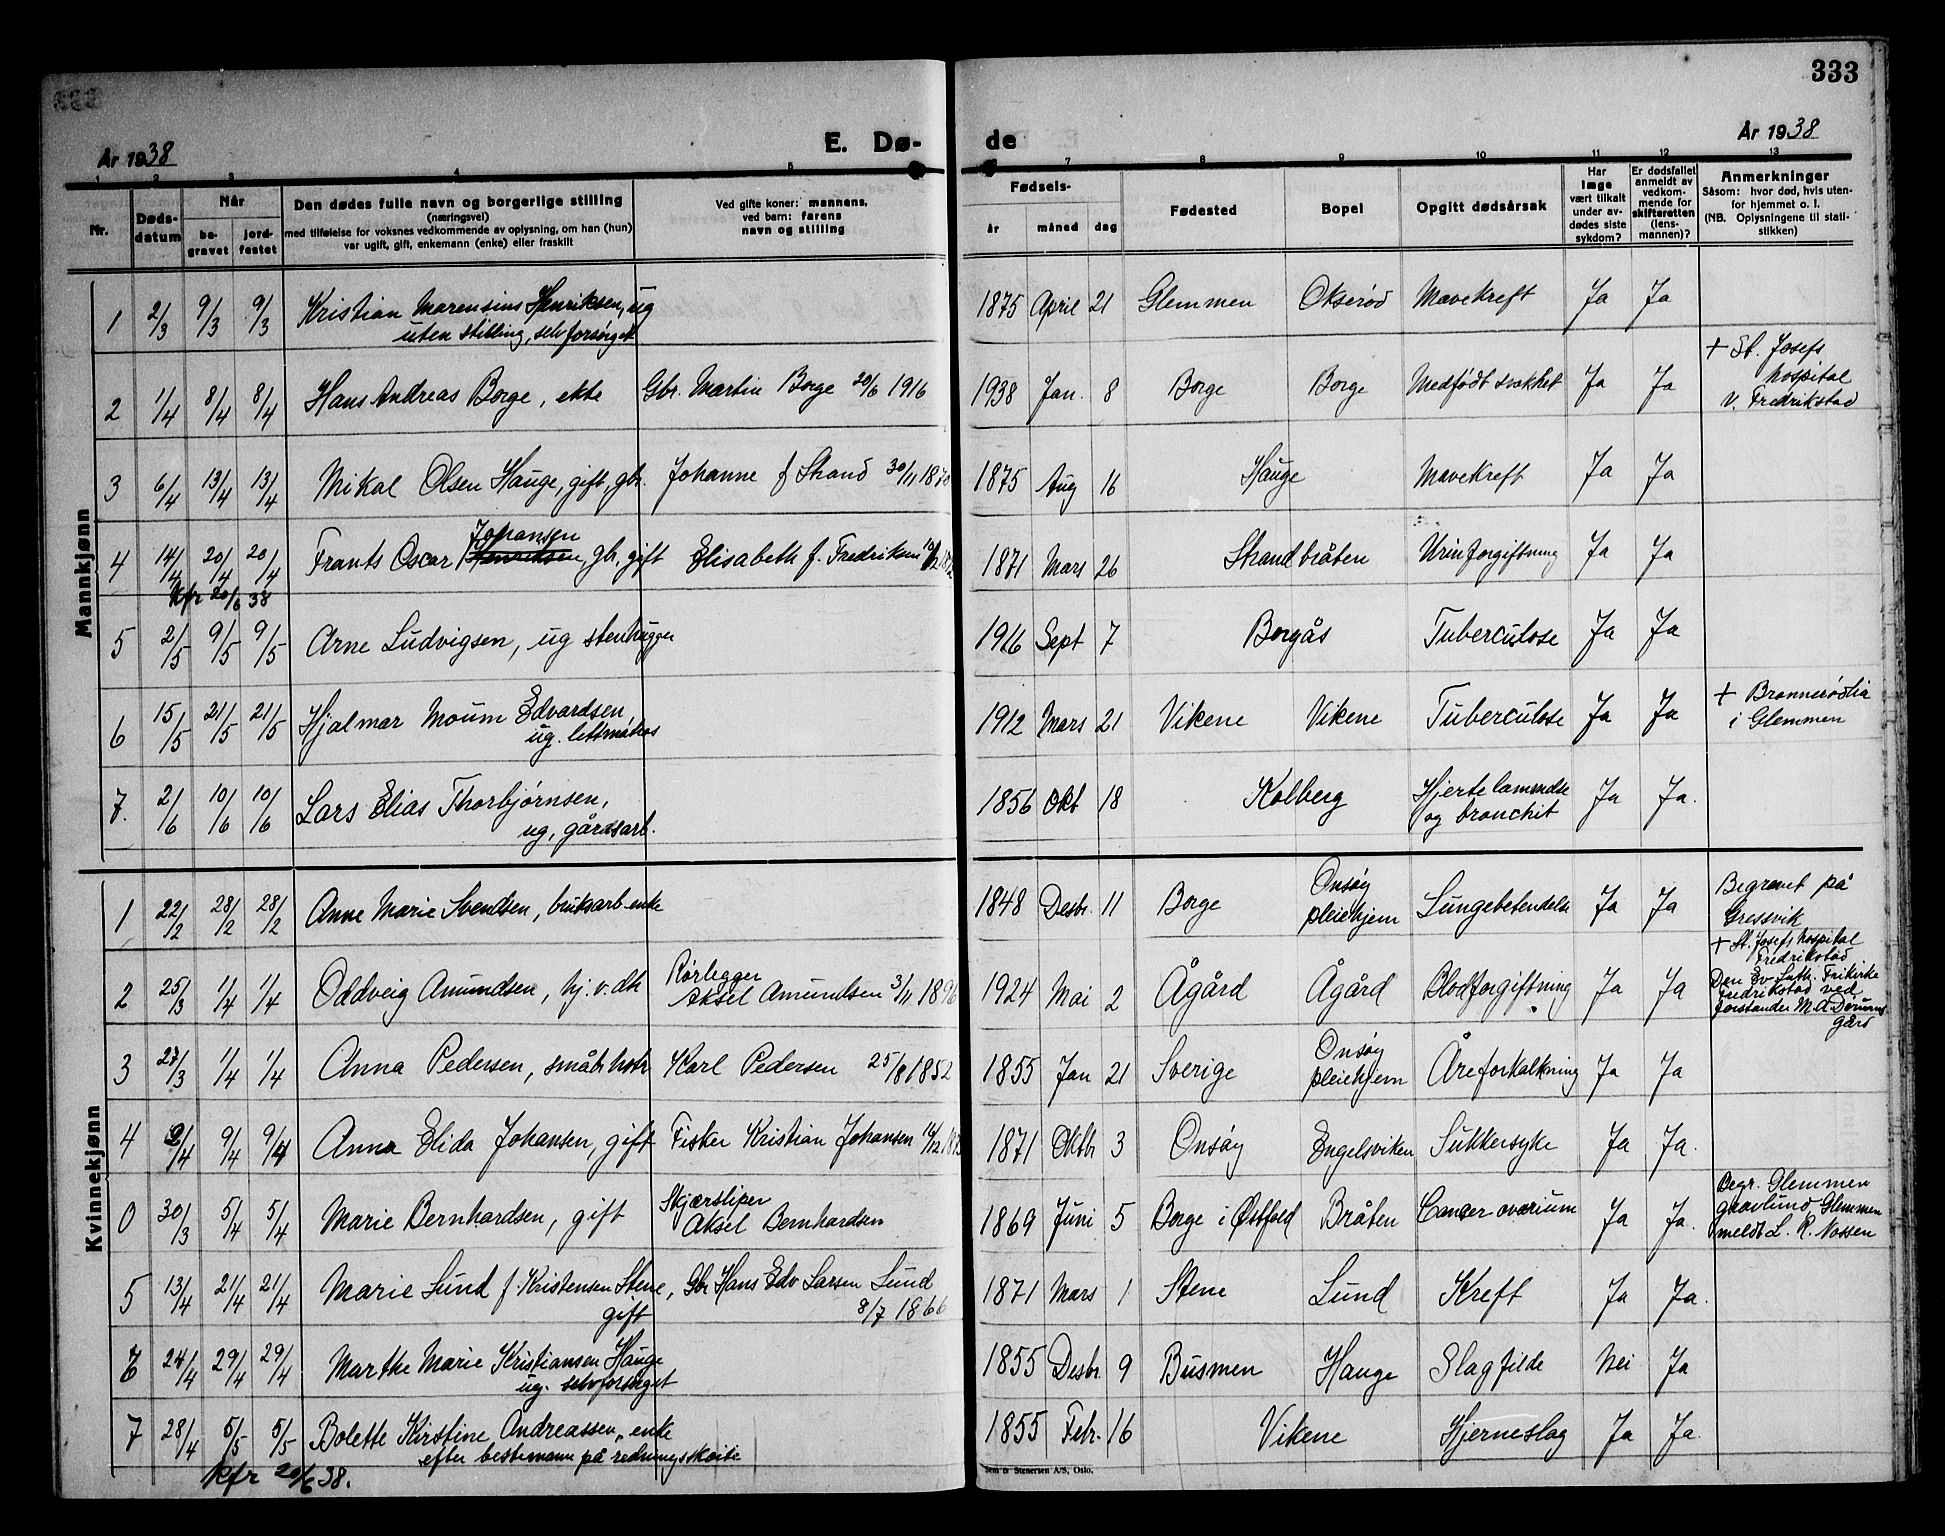 333
År 1938
E. Dø-
de
År 1938
1 2 3 4 5 7 8 9 10 11 12 13
Nr.
Døds-
datum
Når
be-
gravet
jord-
festet
Den dødes fulle navn og borgerlige stilling
(næringsvei)
med tilføielse for voksnes vedkommende av oplysning, om han (hun)
var ugift, gift, enkemann (enke) eller fraskilt
Ved gifte koner: mannens,
ved barn: farens
navn og stilling
Fødsels-
år måned dag
Fødested
Bopel
Opgitt dødsårsak
Har
læge
vært tilkalt
under av-
dødes siste
sykdom?
Er dødsfallet
anmeldt av
vedkom-
mende for
skifteretten
(lens-
mannen)?
Anmerkninger
Såsom: hvor død, hvis uten-
for hjemmet o. l.
(NB. Oplysningene til stati-
stikken)
Mannkjønn
1 2/3 9/3 9/3 Kristian Marensius Henriksen, ug 1875 April 21 Glemmen Okserød Mavekreft Ja Ja
uten stilling, selvforsørget
2 1/4 8/4 8/4 Hans Andreas Borge, ekte Gbr. Martin Borge 20/6 1916 1938 Jan. 8 Borge Borge Medfødt svakhet Ja Ja + St. Josefs
hospital
v. Fredrikstad
3 6/4 13/4 13/4 Mikal Olsen Hauge, gift, gbr. Johanne f Strand 30/11 1870 1875 Aug 16 Hauge Mavekreft Ja Ja
Johansen
4 14/4 20/4 20/4 Frants Oscar Henriksen, gbr, gift Elisabeth f. Fredriksen 1871 Mars 26 Strandbråten Urinforgiftning Ja Ja
Kfr 20/6 38
5 2/5 9/5 9/5 Arne Ludvigsen, ug stenhugger 1916 Sept 7 Borgås Tuberculose Ja Ja
6 15/5 21/5 21/5 Hjalmar Moum Edvardsen, 1912 Mars 21 Vikene Vikene Tuberculose Ja Ja + Brønnerødlia
ug. lettmatros i Glemmen
7. 2/6 10/6 10/6 Lars Elias Thorbjørnsen, 1856 Okt 18 Kolberg Hjertelammelse Ja Ja.
ug, gårdsarb. og bronchit
Kvinnekjønn
1 22/2 28/2 28/2 Anne Marie Svendsen, bruksarb. enke 1848 Desbr. 11 Borge Onsøy
pleiehjem Lungebetendelse Ja Ja Begravet på
Gressvik
2 25/3 1/4 1/4 Oddveig Amundsen, hj.v. dtr Rørlegger
Aksel Amundsen 3/11 1896 1924 Mai 2 Ågård Ågård Blodforgiftning Ja Ja + St. Josefs hospital
Fredrikstad
Den Ev. Luth. Frikirke
Fredrikstad ved
forstander M. A Dørums-
gård
3 27/3 1/4 1/4 Anna Pedersen, småbr.kone Karl Pedersen 25/8 1852 1855 Jan 21 Sverige Onsøy
pleiehjem Åreforkalkning Ja Ja
4 2/4 9/4 9/4 Anna Elida Johansen, gift Fisker Kristian Johansen 1871 Oktbr 3 Onsøy Engelsviken Sukkersyke Ja Ja.
0 30/3 5/4 5/4 Marie Bernhardsen, gift Skjærsliper
Aksel Bernhardsen 1869 Juni 5 Borge i Østfold Bråten Cancer ovarium Ja Ja. Begr. Glemmen
gravlund, Glemmen
meldt L. R. Nossen
5 13/4 21/4 21/4 Marie Lund f. Kristensen Stene, Gbr Hans Edv Larsen Lund 1871 Mars 1 Stene Lund Kreft Ja Ja.
gift 8/7 1866
6 24/4 29/4 29/4 Marthe Marie Kristiansen Hauge 1855 Desbr. 9 Busmen Hauge Slagtilde Nei Ja
ug. selvforsørget
7 28/4 5/5 5/5 Bolette Kirstine Andreassen, enke 1855 Febr. 16 Vikene Hjerneslag Ja Ja.
efter bestemann på redningsskøite
Kfr 20/6 38.
Sem & Stenersen A/S, Oslo.